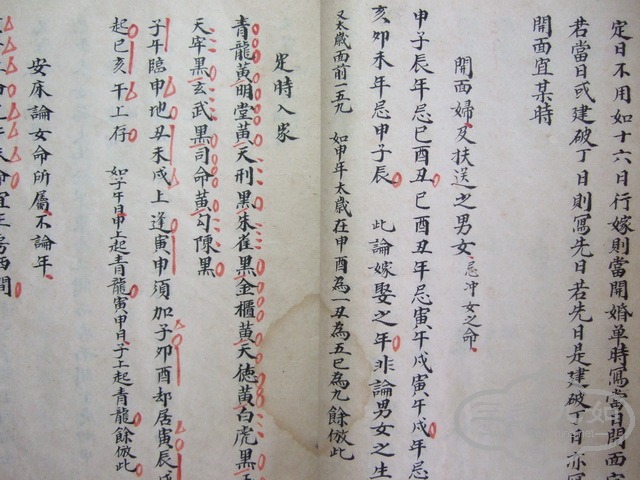 定日不用如十六日行嫁則當開婚单時寫當日開面
若當日或建破丁日則寫先日若先日是建破丁日亦寫
開面宜某時
開面婦及扶送之男女忌冲女之命
申子辰年忌巳酉丑巳酉丑年忌寅午戌寅午戌年忌
亥卯未年忌申子辰 此論嫁娶之年非論男女之生
又太歲面前一五九 如申年太歲在申酉為一丑為五巳為九餘倣此
定時入家
青龍黃明堂黃天刑黑朱雀黑金櫃黃天德黃白虎黑
天牢黑玄武黑司命黃勾陳黑
子午臨申地丑未戌上逢寅申須加子卯酉却居寅辰
起巳亥午上存 如子午日申上起青龍寅申日子上起青龍餘倣此
安床論女命所屬不論年